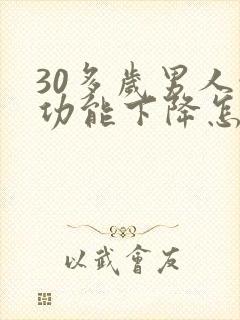 30多歲男人
功能下降怎
以武會友